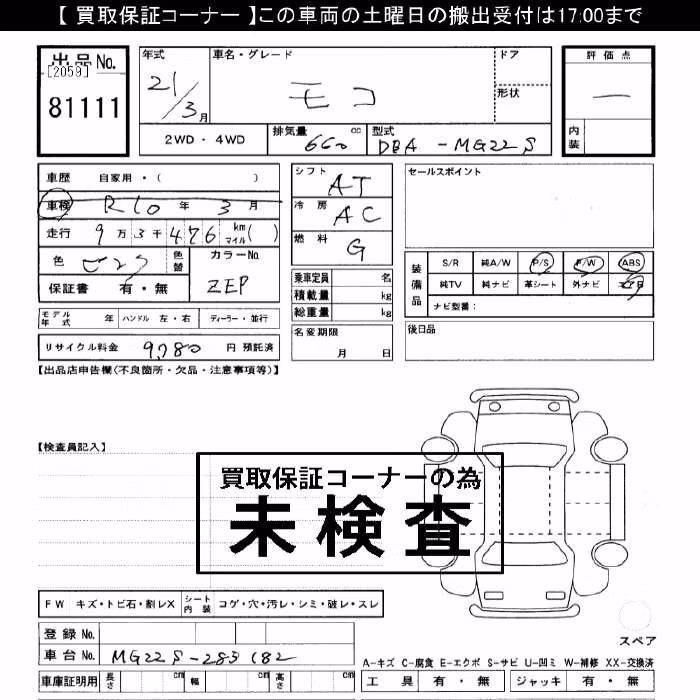 【 買取保証コーナー 】この車両の土曜日の搬出受付は17:00まで
出品No.
[2059]
81111
年式
21/3月
車名・グレード
モコ
ドア
形状
2WD・4WD
排気量 660 cc
型式 DBA-MG22S
評価点
—
内装
車歴 自家用・( )
車検 R10年 3月
走行 9万3千476 km マイル( )
色
色替
カラーNo.
ZEP
保証書 有・無
シフト AT
冷房 AC
燃料 G
乗車定員 名
積載量 kg
総重量 kg
セールスポイント
装備品
S/R 純A/W P/S P/W ABS
純TV 純ナビ 革シート 外ナビ エアB
ナビ型番:
モデル年式 年 ハンドル 左・右 ディーラー・並行
リサイクル料金 9,780 円 預託済
名変期限
月 日
後日品
【出品店申告欄(不良箇所・欠品・注意事項等)】
【検査員記入】
買取保証コーナーの為
未検査
FW キズ・トビ石・割レX
シート内装 コゲ・穴・汚レ・シミ・破レ・スレ
登録No.
車台No. MG22S-283182
車庫証明用 長さ cm 幅 cm 高さ cm
スペア
A-キズ C-腐食 E-エクボ S-サビ U-凹ミ W-補修 XX-交換済
工具 有・無 ジャッキ 有・無